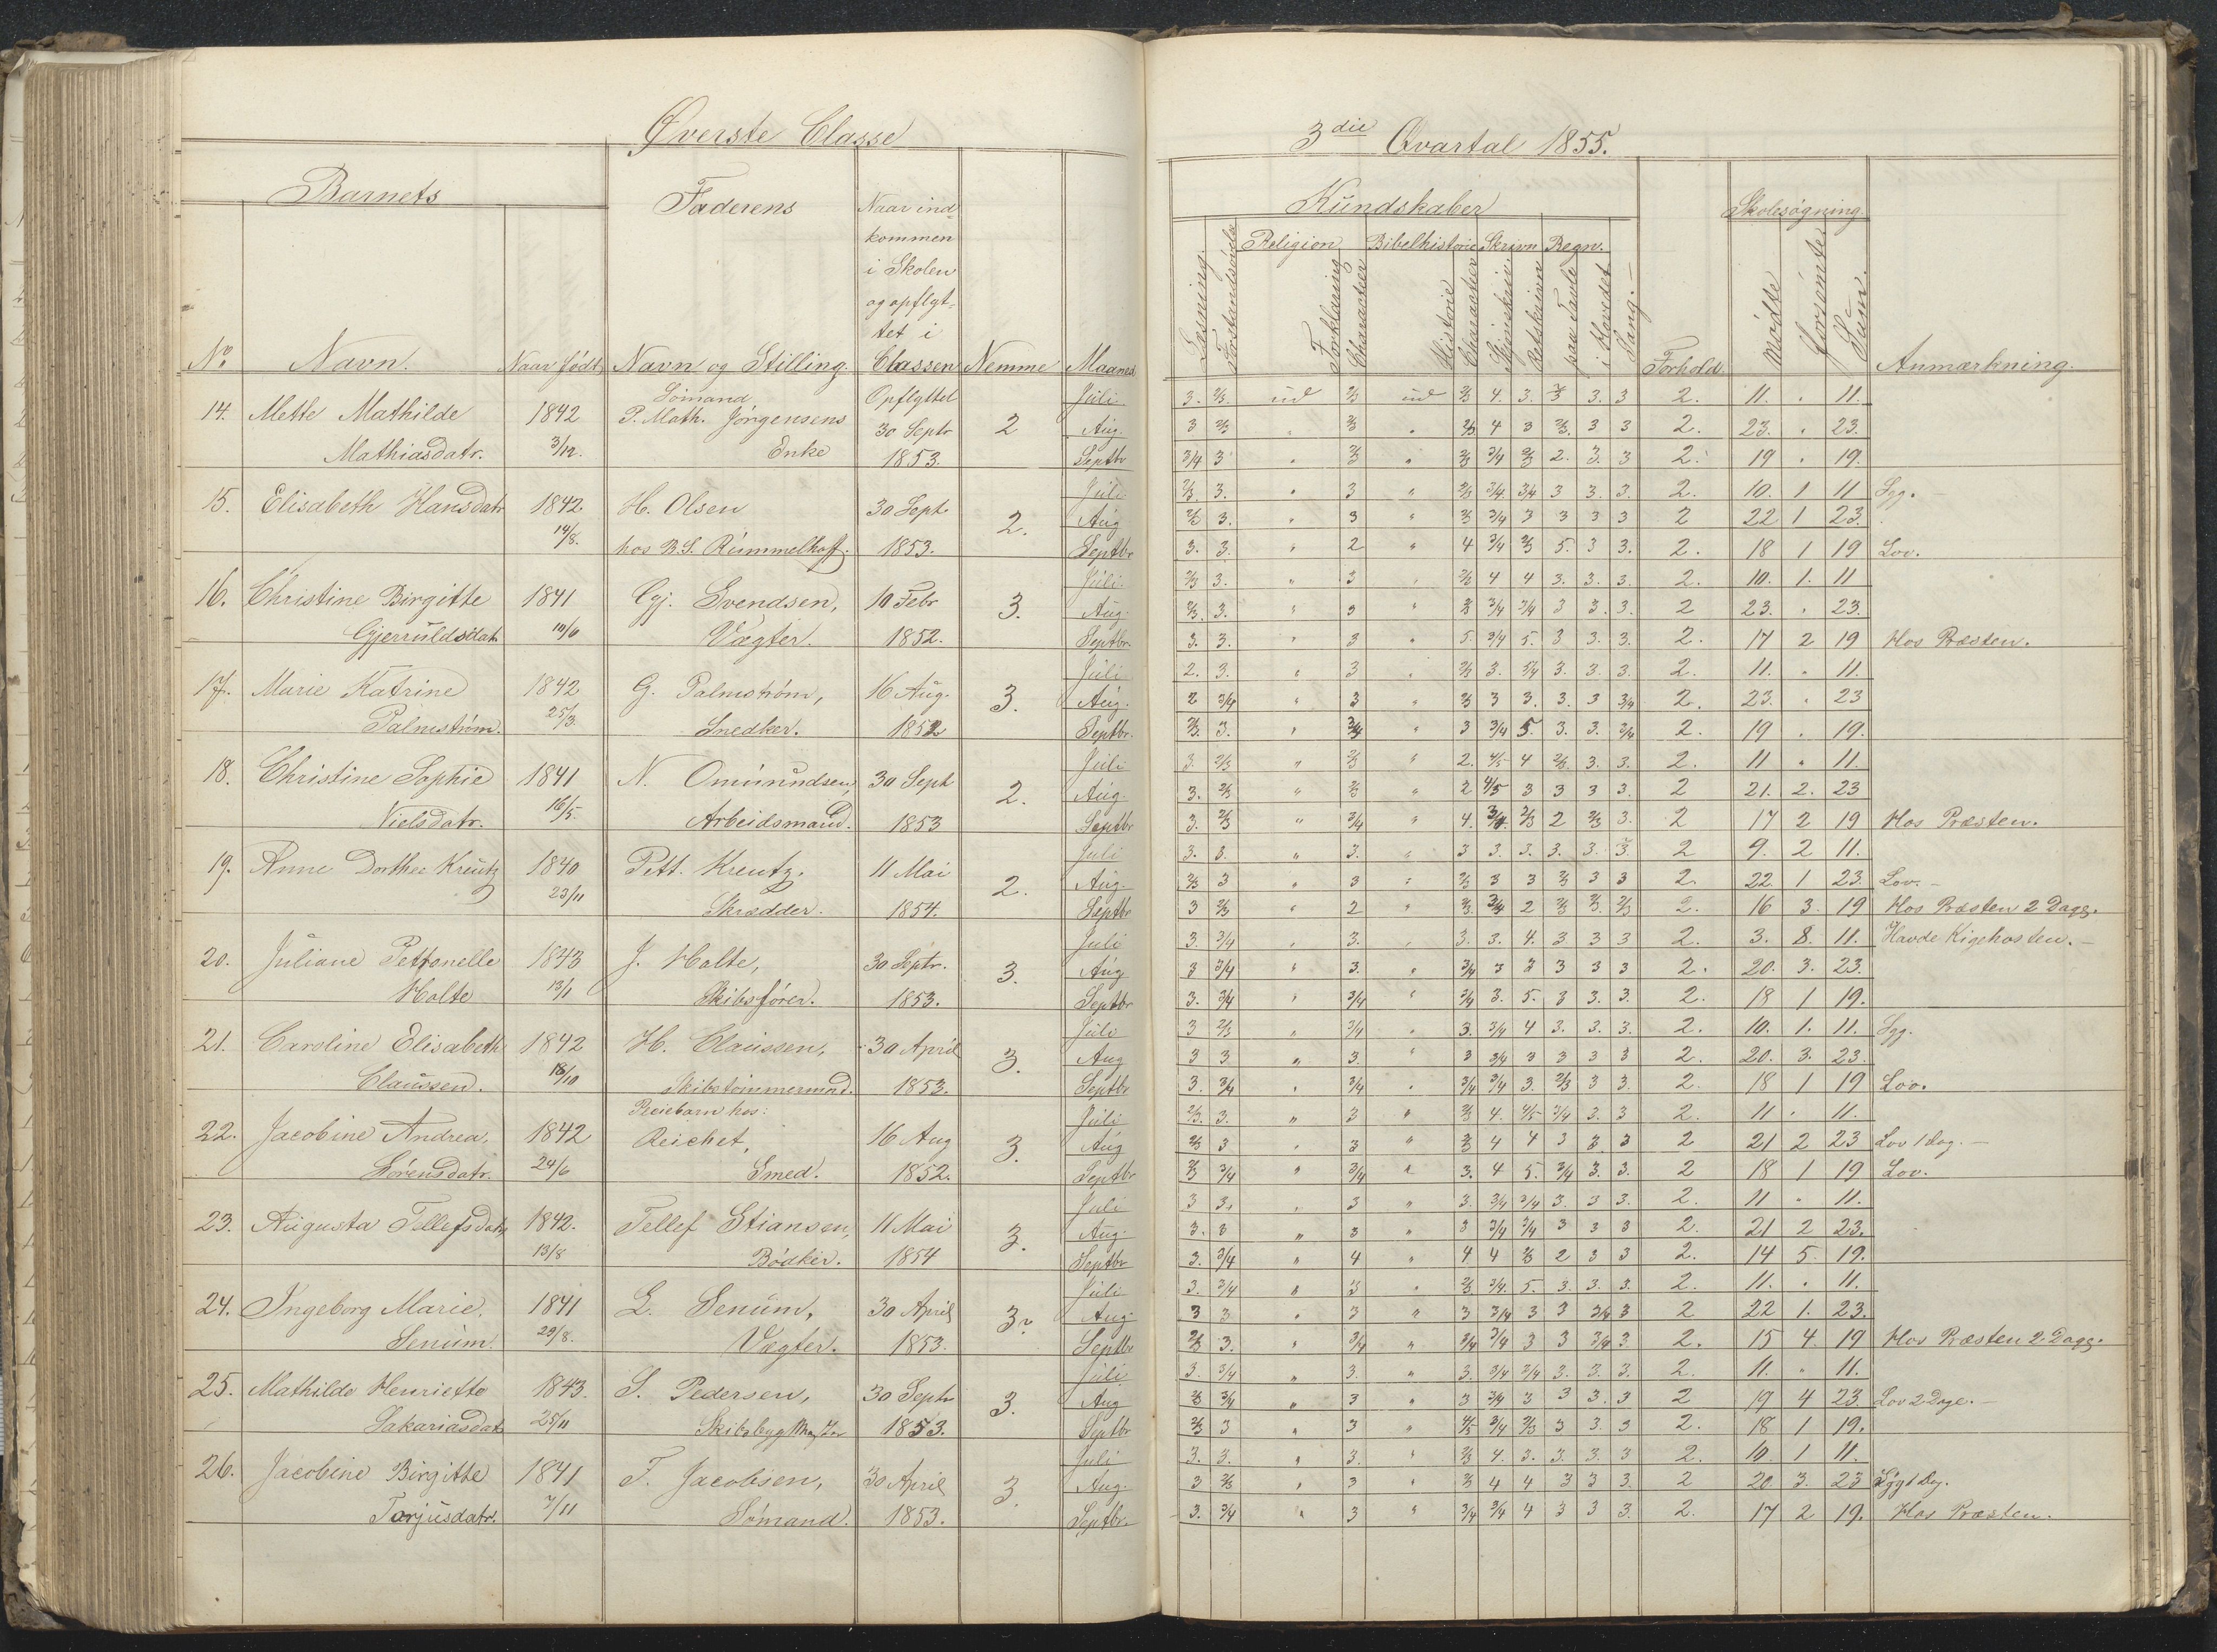 Øverste Classe
Barnets
Faderens
Naar ind
kommen
i Skolen
og opflyt-
tet i
No Navn. Naar født, Navn og Stilling. Classen Nemme Maaned
Sømand Opflyttet Juli
14. Mette Mathilde 1842 P. Math. Jörgensens 30 Septr 2 Aug.
Mathiasdatr. 3/12. Enke 1853. Septbr
Juli
15. Elisabeth Hansdatr 1842 H. Olsen 30 Sept. 2. Aug
14/8. hos B.S. Rummelhoff. 1853. Septbr
Juli
16. Christine Birgitte 1841 Gj. Svendsen, 10 Febr 3. Aug.
Gjerruldsdatr 10/6 Vægter. 1852. Septbr.
Juli
17. Marie Katrine 1842 G. Palmström, 16 Aug. 3. Aug.
Palmström. 25/3. Snedker. 1852 Septbr.
Juli
18. Christine Sophie 1841 N. Omundsen, 30 Sept 2. Aug.
Nielsdatr. 16/5. Arbeidsmand. 1853 Septbr
Juli
19. Anne Dorthee Kreutz 1840 Pett. Kreutz. 11 Mai 2. Aug.
23/11 Skrædder. 1854. Septbr
Juli
20. Juliane Pettronelle 1843 J. Holte, 30 Septr. 3. Aug
Holte 13/1 Skibsfører. 1853. Septbr
Juli
21. Caroline Elisabeth 1842 H. Claussen, 30 April 3. Aug
Claussen. 18/10 Skibstømmermnd. 1853. Septbr
Pleiebarn hos: Juli
22. Jacobine Andrea, 1842 Reichet, 16 Aug 3. Aug
Sörensdatr. 24/6 Smed. 1852. Septbr
Juli
23. Augusta Tellefsdatr, 1842. Tellef Stiansen, 11 Mai 3. Aug.
13/8 Bödker. 1854 Septbr
Juli
24. Ingeborg Marie. 1841 L. Senum, 30 April 3. Aug
Senum. 29/8. Vægter. 1853. Septbr
Juli
25. Mathilde Henriette 1843. S. Pedersen, 30 Septr 3. Aug
Sakariasdatr 25/11 1853. Septbr
Juli
26. Jacobine Birgitte 1841 T. Jacobsen, 30 April 3. Aug.
Tarjusdatr. 7/11 Sømand. 1853. Septbr.
3die Qvartal 1855.
Kundskaber Skolesøgning
Religion Bibelhistorie Skrivn Regn.
Læsning. Forstandsøvelse Forklaring Characteer Historie Characteer Skjønskriv. Retskrivn paa Tavle i Hovedet Sang. Forhold Mødte Forsømte Sum. Anmærkning.
3. 2/3. ud 2/3 ud 2/3 4. 3. 3 3. 3 2. 11. " 11.
3 2/3 " 2/3 " 2/3 4 3 2/3. 3 3 2. 23. " 23.
3/4 3 " 2/3 " 2/3 3/4 2/3 2. 3. 3 2. 19 " 19.
2/3 3. " 3 " 2/3 3/4 3/4 3 3. 3. 2. 10. 1 11 Syg.
2/3 3. " 3 " 2/3 3/4 3 3 3 3 2 22 1 23.
3. 3. " 2 " 4 3/4 2/3 5. 3 3. 2. 18 1 19 Lov.
2/3 3. " 3 " 2/3 4 4 3. 3. 3. 2. 10. 1. 11
2/3. 3. " 3 " 2/3 3/4 3/4 3 3. 3. 2 23. " 23.
3. 3. " 3 " 5. 3/4 5. 3 3. 3. 2. 17 2 19 Hos Præsten.
2. 3. " 3 " 2/3 3. 5/4 3. 3. 3. 2. 11. " 11.
2 3/4 " 3 " 2/3 3 3. 3. 3 3/4 2. 23. " 23
2/3. 3. " 3/4 " 3 3/4 5. 3. 3. 3/4 2. 19 " 19.
3 2/3 " 2/3 " 2. 4/5 4 2/3. 3. 3. 2. 11 " 11.
3. 2/3 " 2/3 " 2 4/5 3 3 3 3. 2 21. 2. 23
3. 2/3 " 3/4 " 4. 3/4. 2/3 2 2/3 3. 2 17 2 19 Hos Præsten.
3. 3. " 3. " 3 3. 3. 3. 3. 3. 2 9. 2 11.
2/3 3 " 3 " 2/3 3 3 2/3 3 3 2. 22 1 23. Lov.
3 2/3 " 2 " 2/3. 3/4 2 2/3 2/3. 2/3 2. 16 3. 19 Hos Præsten 2 Dage.
3. 3/4 " 3. " 3. 3. 4. 3 3 3 2. 3. 8. 11. Havde Kigehosten.
3 3/4 " 3. " 3/4 3 3 3 3 3 2. 20. 3. 23.
3. 3/4 " 3/4 " 3/4 3. 5. 3 3. 3. 2. 18 1 19.
3 2/3 " 3/4 " 3. 3/4 4 3. 3. 3. 2. 10. 1. 11. Syg.
3 3 " 3. " 3 3/4 3 3 3 3 2. 20. 3. 23.
3. 3/4 " 3/4 " 3/4 3/4 3. 2/3 3 3. 2. 18 1 19 Lov.
2/3. 3. " 3 " 2/3 4. 4/5 3/4 3. 3 2. 11 " 11.
2/3 3 " 3 " 2/3 4 4 3 3. 3 2 21 2 23 Lov 1 Dag.
2/3 3/4 " 3/4 " 3. 4 5. 3/4 3. 3. 2 18 1 19 Lov.
3 3. " 3 " 3. 3/4 3/4 3. 3 3. 2. 11 " 11.
3. 3 " 3 " 3 3/4 3/4 3 3 3 2. 21 2 23.
3. 3/4 " 4 " 4 4 2/3 2 3 3 2. 14 5. 19.
3. 3/4 " 3 " 2/3 3/4. 5. 3. 3. 3. 2. 11. " 11.
3 3 " 3 " 3 3/4 3 3 3/4 3 2 22 1. 23.
2/3 3. " 3/4 " 3/4 3/4 3 3 3/4 3. 2. 15 4. 19 Hos Præsten 2 Dage.
3. 3/4 " 3. " 3. 3/4 3/4 3. 3. 3. 2. 11. " 11.
2/3 3/4 " 3 " 3 3/4 3 3 3. 3 2 19 4 23. Lov 2 Dage.
2/3 3 " 3 " 4/5 3/4 2/3 3 3. 3 2. 18 1 19.
3. 3. " 3. " 2/3 4. 3. 3. 3. 3 2. 10. 1 11.
3 2/3 " 3 " 2/3 4 4 3 3 3. 2 20. 3. 23 Syg 1 Dag.
3. 3/4 " 3 " 3/4 3/4 4 3 3 3. 2. 17 2 19. Hos Præsten.